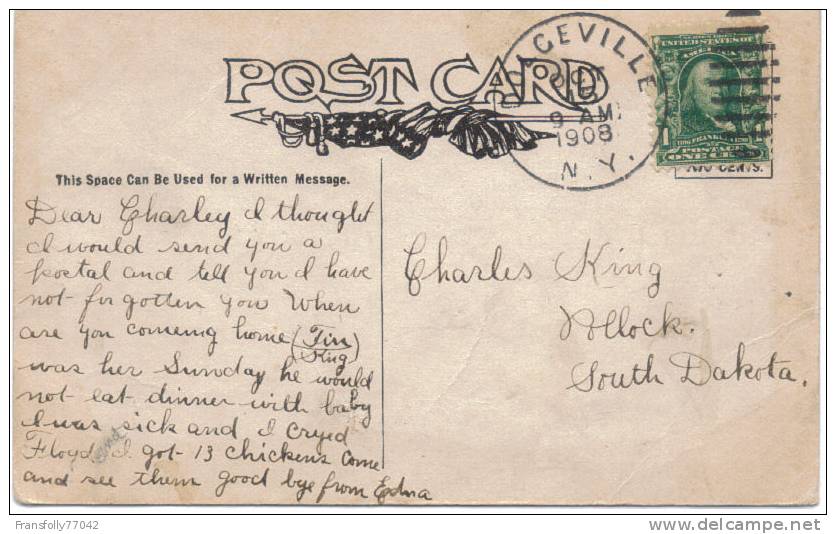 POST CARD
CEVILLE
OCT
9 AM
1908
N.Y.
SERIES 1902
UNITED STATES OF
AMERICA
1
FRANKLIN
POSTAGE
ONE CENT
TWO CENTS.
This Space Can Be Used for a Written Message.
Dear Charley I thought
I would send you a
postal and tell you I have
not for gotten you When
are you comeing home (Tin
King)
was her Sunday he would
not eat dinner with baby
I was sick and I cryed
Floyd and I got 13 chickens come
and see them good bye from Edna
Charles King
Pollock.
South Dakota.
Fransfolly77042
www.delcampe.net